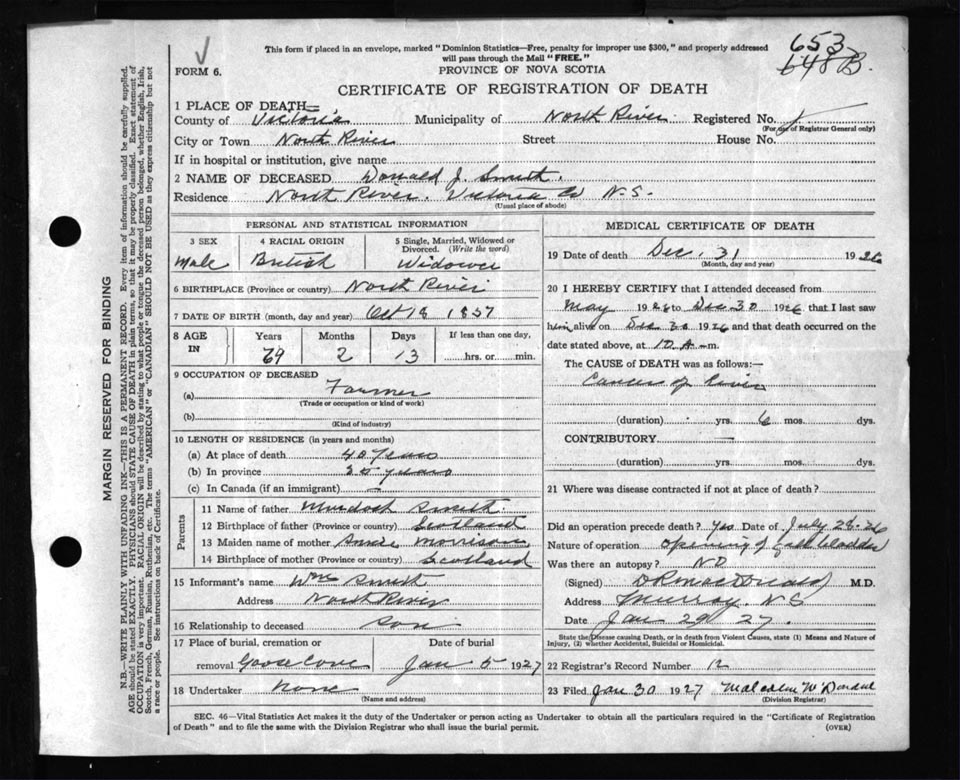 This form if placed in an envelope, marked "Dominion Statistics—Free, penalty for improper use $300," and properly addressed
will pass through the Mail "FREE."
653
648 B.
FORM 6.
PROVINCE OF NOVA SCOTIA
CERTIFICATE OF REGISTRATION OF DEATH
1 PLACE OF DEATH—
County of Victoria Municipality of North River Registered No.
(For use of Registrar General only)
City or Town North River Street House No.
If in hospital or institution, give name
2 NAME OF DECEASED Donald J. Smith.
Residence North River. Victoria Co N.S.
(Usual place of abode)
PERSONAL AND STATISTICAL INFORMATION
3 SEX 4 RACIAL ORIGIN 5 Single, Married, Widowed or
Divorced. (Write the word)
Male British Widower
6 BIRTHPLACE (Province or country) North River
7 DATE OF BIRTH (month, day and year) Oct 18 1857
8 AGE IN Years Months Days If less than one day,
69 2 13 hrs. or min.
9 OCCUPATION OF DECEASED
(a) Farmer
(Trade or occupation or kind of work)
(b)
(Kind of industry)
10 LENGTH OF RESIDENCE (in years and months)
(a) At place of death 40 years
(b) In province years
(c) In Canada (if an immigrant) —
Parents
11 Name of father Murdoch Smith
12 Birthplace of father (Province or country) Scotland
13 Maiden name of mother Annie Morrison
14 Birthplace of mother (Province or country) Scotland
15 Informant's name Wm Smith
Address North River
16 Relationship to deceased son
17 Place of burial, cremation or Date of burial
removal Goose Cove Jan 5 1927
18 Undertaker None
(Name and address)
MEDICAL CERTIFICATE OF DEATH
19 Date of death Dec. 31 1926
(Month, day and year)
20 I HEREBY CERTIFY that I attended deceased from
May 1926 to Dec 30 1926 that I last saw
him alive on Dec 30 1926 and that death occurred on
date stated above, at 10 A m.
The CAUSE OF DEATH was as follows:—
Cancer of Liver
(duration) yrs. 6 mos. dys.
CONTRIBUTORY —
(duration) yrs. mos. dys.
21 Where was disease contracted if not at place of death?
Did an operation precede death? Yes Date of July 28-26
Nature of operation Opening of Gall bladder
Was there an autopsy? NO
(Signed) MacDonald M.D.
Address Murray. N S
Date Jan 29 27.
State the Disease causing Death, or in death from Violent Causes, state (1) Means and Nature of
Injury, (2) whether Accidental, Suicidal or Homicidal.
22 Registrar's Record Number 12
23 Filed Jan 30 1927 Malcolm
(Division Registrar)
SEC. 46—Vital Statistics Act makes it the duty of the Undertaker or person acting as Undertaker to obtain all the particulars required in the "Certificate of Registration
of Death" and to file the same with the Division Registrar who shall issue the burial permit. (OVER)
MARGIN RESERVED FOR BINDING
N.B.—WRITE PLAINLY WITH UNFADING INK—THIS IS A PERMANENT RECORD. Every item of information should be carefully supplied.
AGE should be stated EXACTLY. PHYSICIANS should STATE CAUSE OF DEATH in plain terms, so that it may be properly classified. Exact statement of
OCCUPATION is very important. RACIAL ORIGIN will be described by stating to what people or tongue the deceased person belonged, whether English, Irish,
Scotch, French, German, Russian, Ruthenian, etc. The terms "AMERICAN" or "CANADIAN" SHOULD NOT BE USED as they express citizenship but not
a race or people. See instructions on back of Certificate.